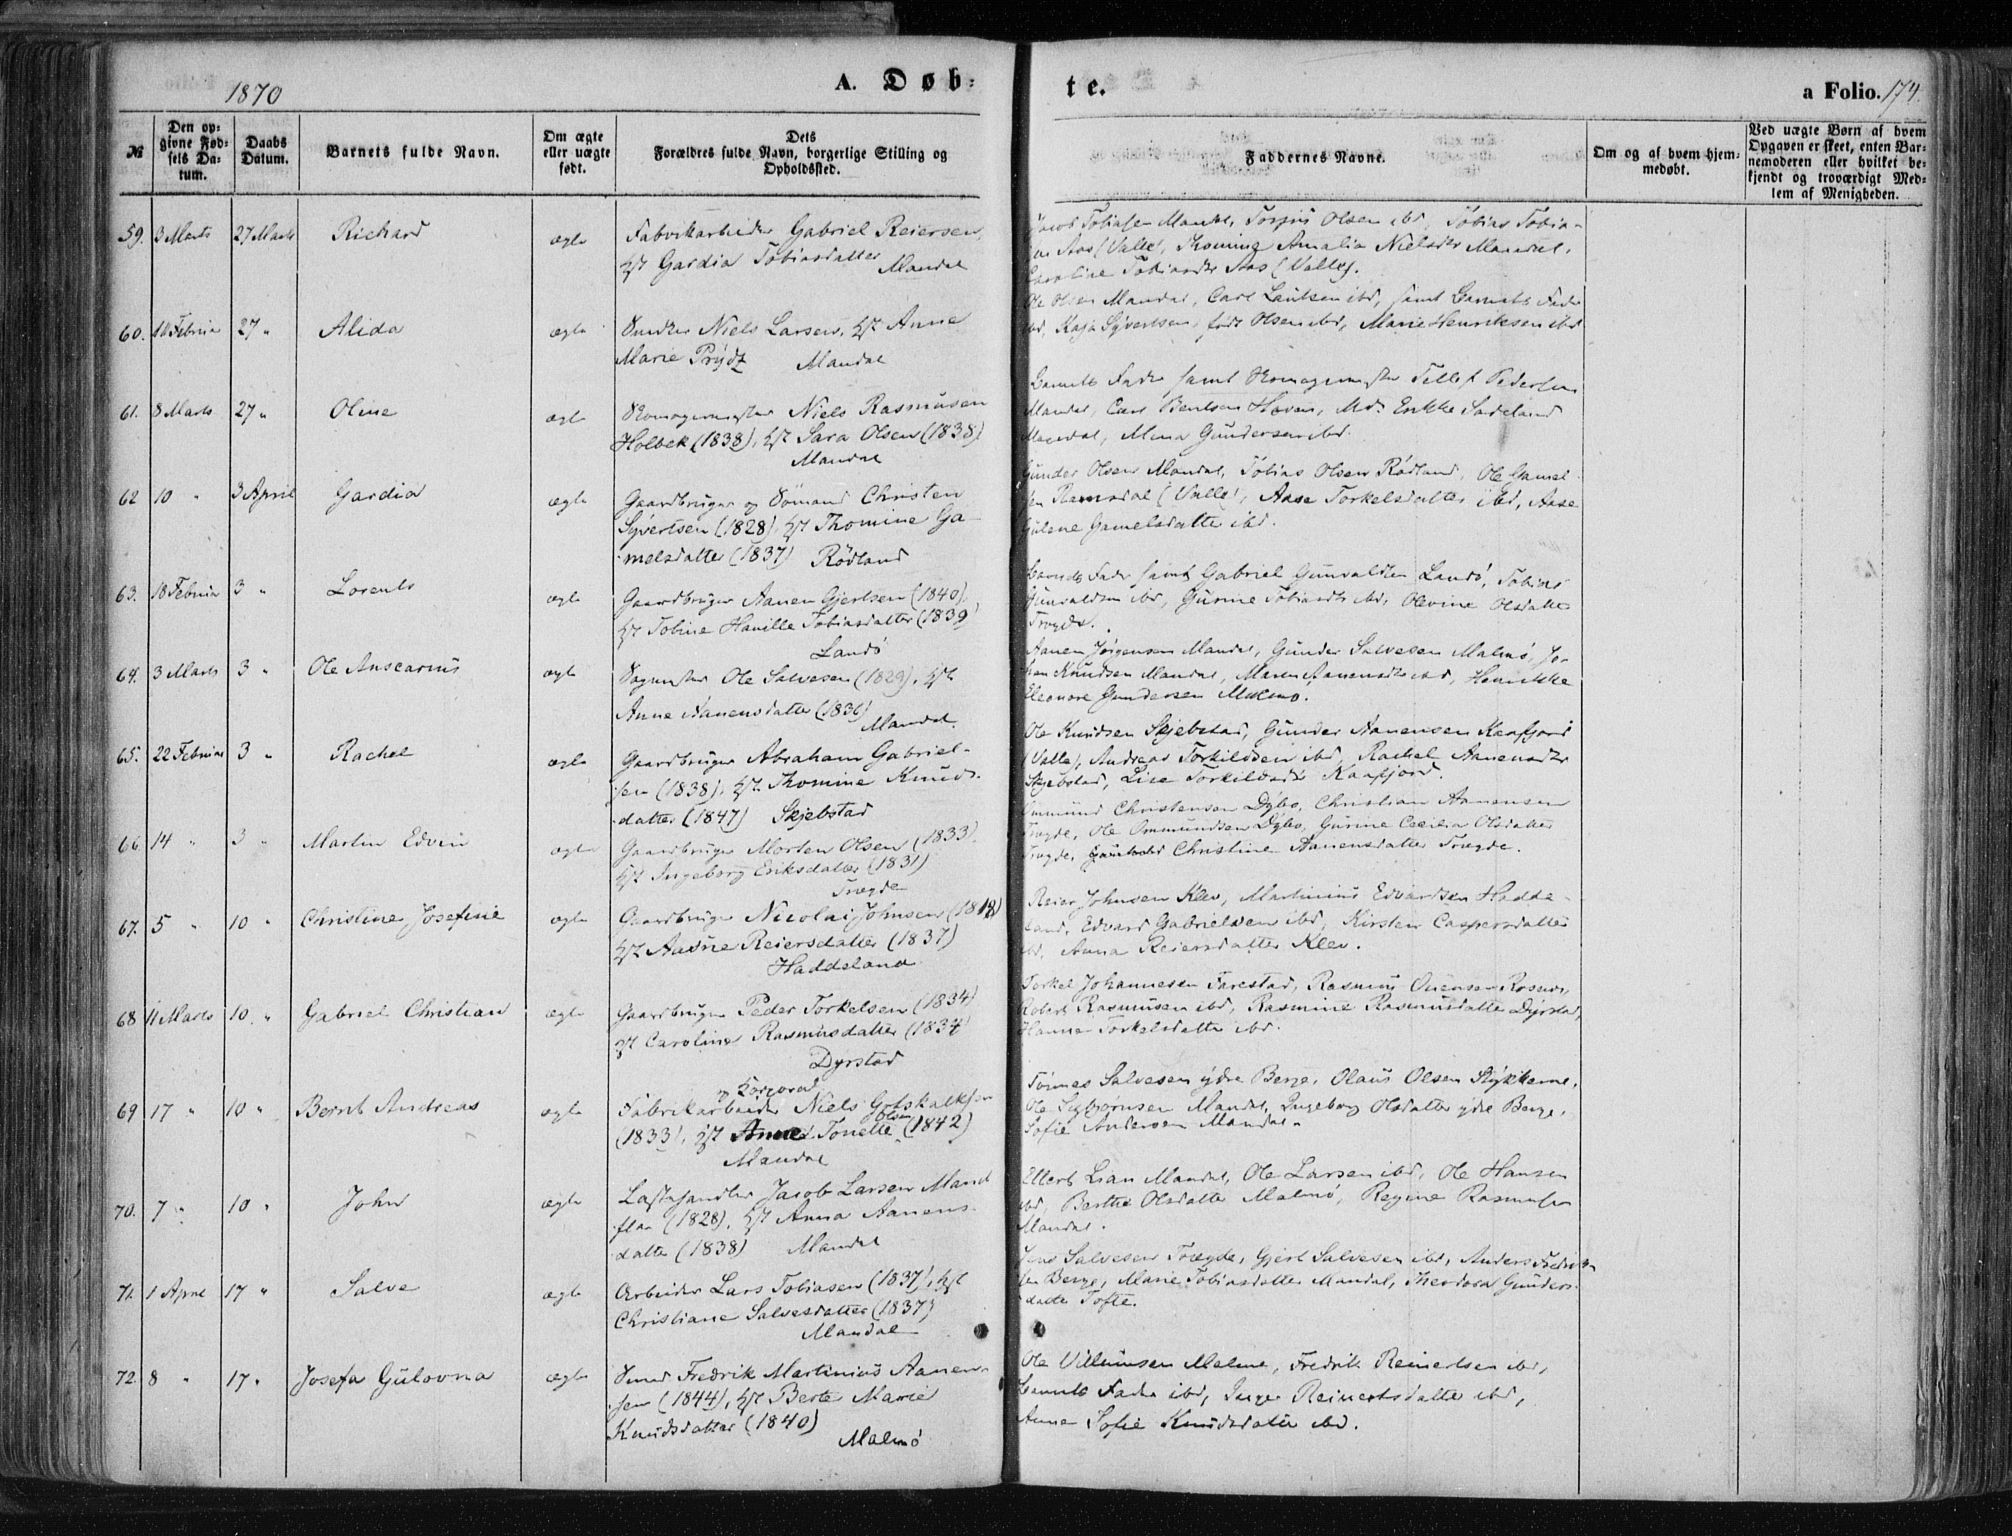 1870
A. Døb=
te.
a Folio. 174.
№
Den op=
givne Fød=
sels Da=
tum.
Daabs
Datum.
Barnets fulde Navn.
Om ægte
eller uægte
født.
Dets
Forældres fulde Navn, borgerlige Stilling og
Opholdssted.
Faddernes Navne.
Om og af hvem hjem=
medøbt.
Ved uægte Børn af hvem
Opgaven er skeet, enten Bar=
nemoderen eller hvilket be=
kjendt og troværdigt Med=
lem af Menigheden.
59. 3 Marts 27 Marts Richard ægte Fabrikarbeider Gabriel Reiersen,
Gardia Tobiasdatter
Mandal
Jacob Tobiasen Mandal, Olsen ibd, Tobias Tobia-
Aas (Valle), Amalia Nielsdtr Mandal,
Caroline Tobiasdtr Aas (Valle).
60. Februar 27 " Alida ægte Niels Larsen, Anne
Marie Prydz Mandal
Ole Olsen Mandal, Carl ibd, samt Barnets Fader
ibd, Kaja Syvertsen, født Olsen ibd, Marie Henriksen ibd
61. 8 Marts 27 " Oline ægte Skomagermester Niels Rasmusen
Holbek (1838), Sara Olsen (1838)
Mandal
Barnets Fader samt Skomagermester Tellef Pedersen
Mandal, Carl Bentsen Haven, Enkke
Mandal, Mina Gundersen ibd.
62 10 " 3 April Gardia ægte Gaardbruger og Sømand Christen
Syvertsen (1828), Thomine Ga-
melsdatter (1837) Rødland
Gunder Olsen Mandal, Tobias Olsen Rødland, Ole Gamel-
sen (Valle), Aase Torkelsdatter ibd, Aase
Gulene Gamelsdatter ibd.
63. 18 Februar 3 " Lorents ægte Gaardbruger Aanen Gjertsen (1840),
Tobine Tobiasdatter (1839)
Landø
Barnets Fader samt Gabriel Gunvaldsen Landø, Tobias
Gunvaldsen ibd, Gurine Tobiasdtr ibd, Olevine Olsdatter
Trægde.
64. 3 Marts 3 " Ole Anscarius ægte Ole Salvesen (1829),
Anne Aanensdatter (1836)
Mandal.
Aanen Jørgensen Mandal, Gunder Salvesen Malmø, Jo-
han Knudsen Mandal, Maren Aanensdtr ibd, Henrikke
Eleonore Gundersen Malmø.
65. 22 Februar 3 " Rachel ægte Gaardbruger Abraham Gabriel-
sen (1838), Thomine Knuds-
datter (1847) Skjebstad
Ole Knudsen Skjebstad, Gunder Aanensen Kaafjord
(Valle), Andreas Torkildsen ibd, Rachel Aanensdtr
Skjebstad, Lise Torkildsdtr Kaafjord.
66 14 " 3 " Martin Edvin ægte Gaardbruger Morten Olsen (1833)
Ingeborg Eriksdatter (1831)
Trægde
Ommund Christensen Dybo, Christian Aanensen
Trægde, Ole Ommundsen Dybo, Gurine Cecilia Olsdatter
Trægde, Christine Aanensdatter Trægde.
67. 5 " 10 " Christine Josefine ægte Gaardbruger Nicolai Johnsen
Aasne Reiersdatter (1837)
Haddeland
Reier Johnsen Klev, Martinius Edvardsen Hadde-
land, Edvard Gabrielsen ibd, Kirsten Caspersdatter
ibd, Anna Reiersdatter Klev.
68 11 Marts 10 " Gabriel Christian ægte Gaardbruger Peder Torkelsen (1834)
Caroline Rasmusdatter (1834
Dyrstad
Torkel Johannesen Farestad, Rasmus
Robert Rasmusen ibd, Rasmine Rasmusdatter Dyrstad,
Hanne Torkelsdatter ibd.
69 17 " 10 " Bernt Andreas ægte og Korporal
Fabrikarbeider Niels Gotskalksen
(1833), Anne Tonette Olsen (1842)
Mandal
Tønnes Salvesen ydre Berge, Olaus Olsen Stykkerne,
Ole Sigbjørnsen Mandal, Ingeborg Olsdatter ydre Berge,
Sofie Andersen Mandal.
70. 7 " 10 " John ægte Jacob Larsen Mand
flaa (1828), Anna Aanens-
datter (1838) Mandal
Ellert Lian Mandal, Ole Larsen ibd, Ole Hansen
ibd, Berthe Olsdatter Malmø, Regine Rasmusen
Mandal.
71. 1 April 17 " Salve ægte Arbeider Lars Tobiasen (1837),
Christiane Salvesdatter (1837)
Mandal
Jens Salvesen Trægde, Gjert Salvesen ibd, Anders Fredrik-
sen Berge, Marie Tobiasdatter Mandal, Theodora Gunders-
datter Tofte.
72 8 " 17 " Josefa Gulovna ægte Smed Fredrik Martinius Aanen-
sen (1844), Berte Marie
Knudsdatter (1840)
Malmø
Ole Villumsen Malmø, Fredrik Reinertsen ibd,
Barnets Fader ibd, Inger Reinertsdatter ibd,
Anne Sofie Knudsdatter ibd.